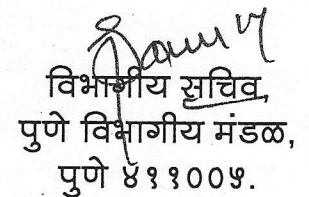 विभागीय सचिव,
पुणे विभागीय मंडळ,
पुणे ४११००५.